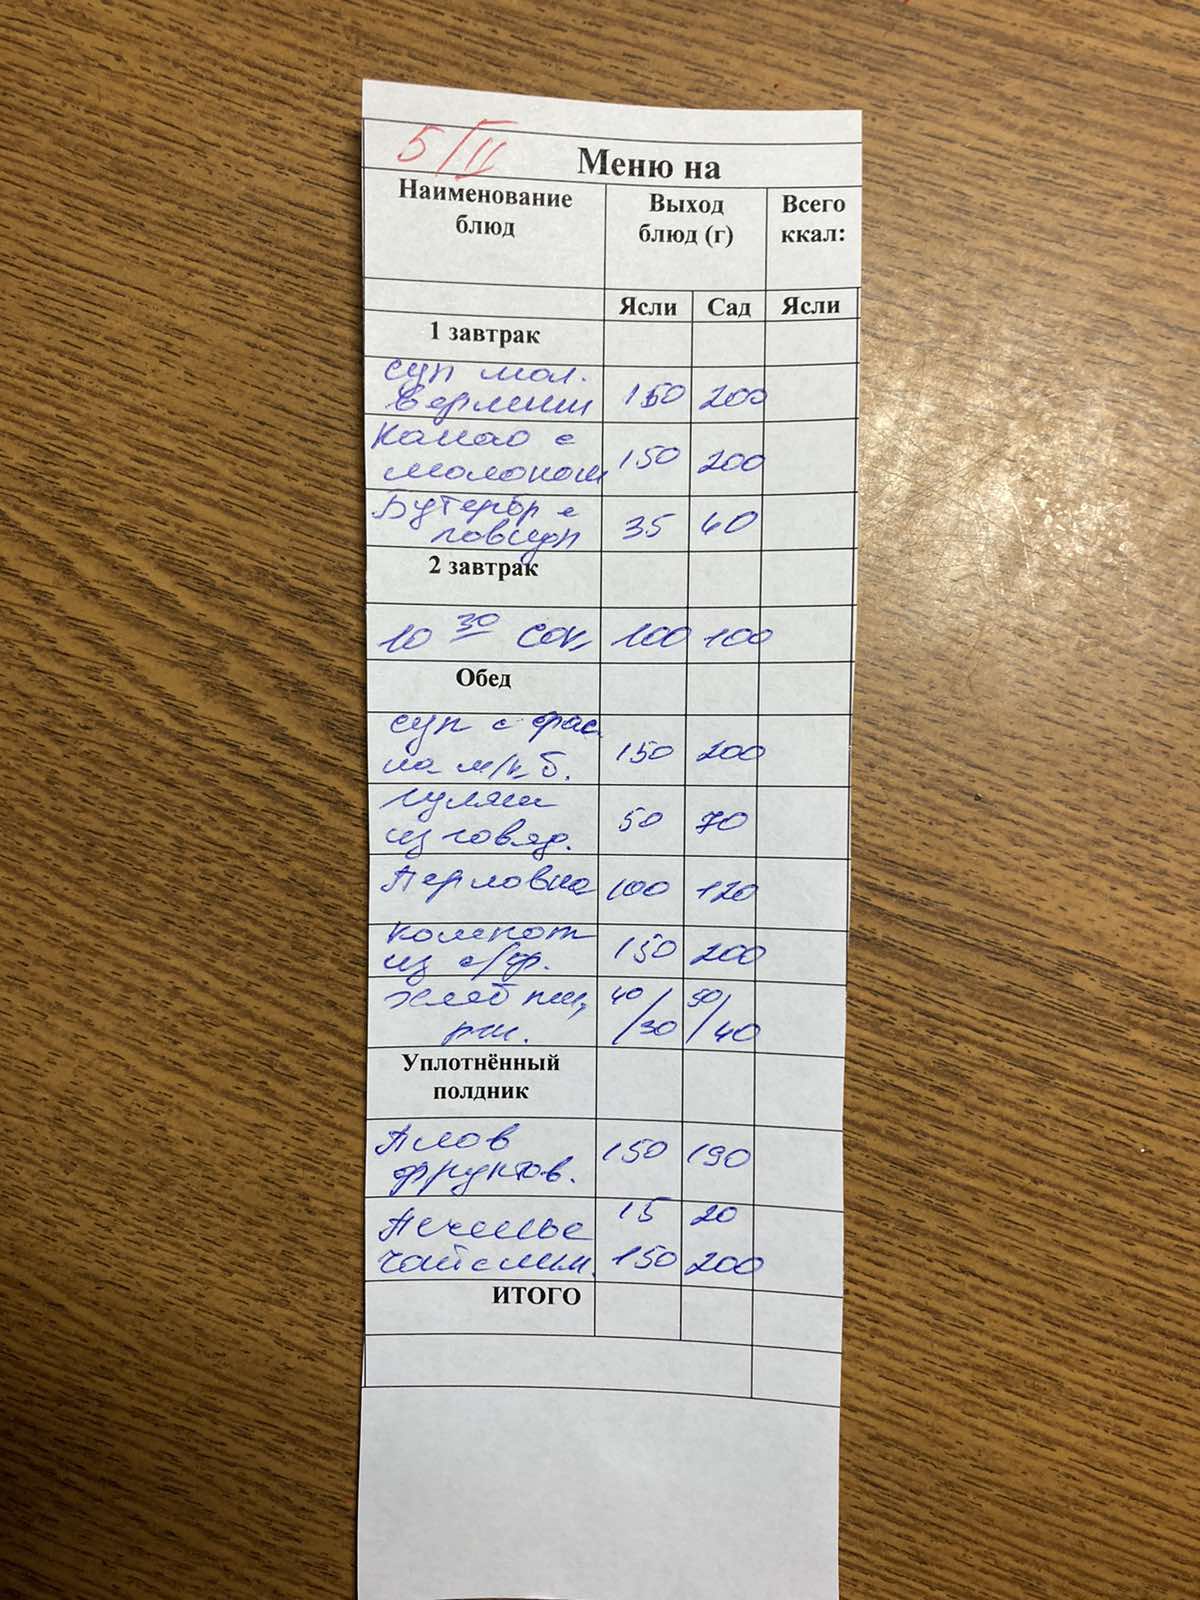 5/II Меню на
Наименование блюд Выход блюд (г) Всего ккал:
Ясли Сад Ясли
1 завтрак
суп мол.
вермиш 150 200
Какао с
молоком 150 200
Бутербр с
повидл 35 40
2 завтрак
10 30 сок 100 100
Обед
суп с фас.
на м/к б. 150 200
гуляш
из говяд. 50 70
Перловка 100 120
компот
из с/фр. 150 200
хлеб пш, 40/30 50/40
рж.
Уплотнённый
полдник
Плов
фруктов. 150 190
Печенье 15 20
чай с лим. 150 200
ИТОГО